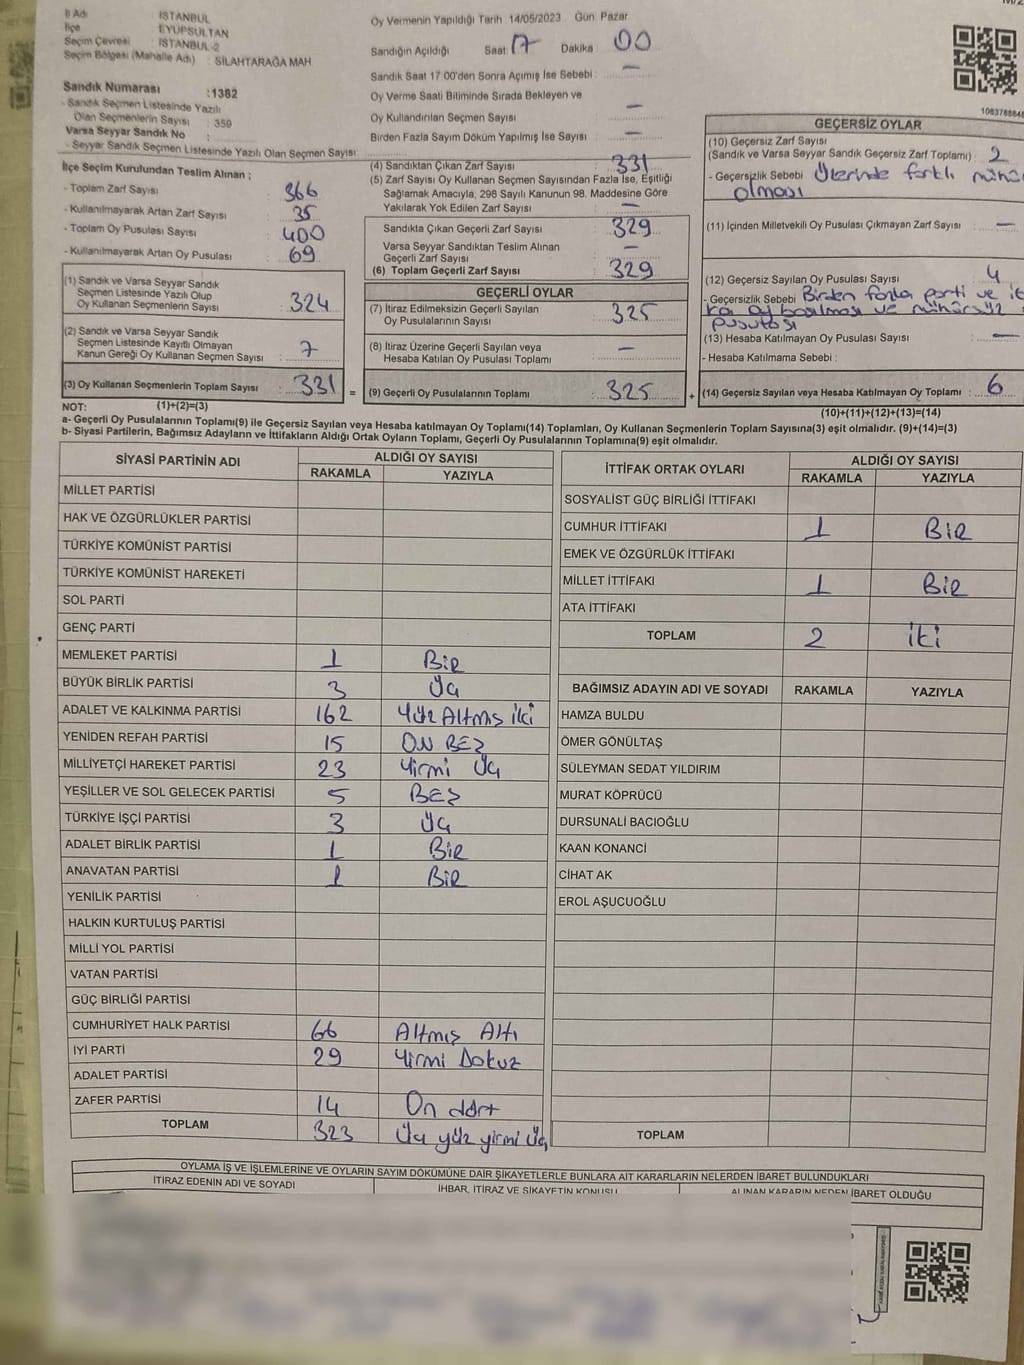 İl Adı İSTANBUL
İlçe EYÜPSULTAN
Seçim Çevresi İSTANBUL-2
Seçim Bölgesi (Mahalle Adı) : SİLAHTARAĞA MAH
Sandık Numarası :1382
- Sandık Seçmen Listesinde Yazılı
Olan Seçmenlerin Sayısı : 359
Varsa Seyyar Sandık No :
- Seyyar Sandık Seçmen Listesinde Yazılı Olan Seçmen Sayısı:
İlçe Seçim Kurulundan Teslim Alınan ;
- Toplam Zarf Sayısı : 366
- Kullanılmayarak Artan Zarf Sayısı : 35
- Toplam Oy Pusulası Sayısı : 400
- Kullanılmayarak Artan Oy Pusulası : 69
(1) Sandık ve Varsa Seyyar Sandık
Seçmen Listesinde Yazılı Olup
Oy Kullanan Seçmenlerin Sayısı : 324
(2) Sandık ve Varsa Seyyar Sandık
Seçmen Listesinde Kayıtlı Olmayan
Kanun Gereği Oy Kullanan Seçmen Sayısı : 7
(3) Oy Kullanan Seçmenlerin Toplam Sayısı : 331 =
Oy Vermenin Yapıldığı Tarih 14/05/2023 Gün Pazar
Sandığın Açıldığı Saat 17 Dakika 00
Sandık Saat 17:00'den Sonra Açılmış İse Sebebi : —
Oy Verme Saati Bitiminde Sırada Bekleyen ve
Oy Kullandırılan Seçmen Sayısı : —
Birden Fazla Sayım Döküm Yapılmış İse Sayısı : —
(4) Sandıktan Çıkan Zarf Sayısı : 331
(5) Zarf Sayısı Oy Kullanan Seçmen Sayısından Fazla İse, Eşitliği
Sağlamak Amacıyla, 298 Sayılı Kanunun 98. Maddesine Göre
Yakılarak Yok Edilen Zarf Sayısı : —
Sandıkta Çıkan Geçerli Zarf Sayısı : 329
Varsa Seyyar Sandıktan Teslim Alınan
Geçerli Zarf Sayısı : —
(6) Toplam Geçerli Zarf Sayısı : 329
GEÇERLİ OYLAR
(7) İtiraz Edilmeksizin Geçerli Sayılan
Oy Pusulalarının Sayısı : 325
(8) İtiraz Üzerine Geçerli Sayılan veya
Hesaba Katılan Oy Pusulası Toplamı : —
(9) Geçerli Oy Pusulalarının Toplamı : 325 +
GEÇERSİZ OYLAR
(10) Geçersiz Zarf Sayısı
(Sandık ve Varsa Seyyar Sandık Geçersiz Zarf Toplamı) : 2
- Geçersizlik Sebebi Üzerinde farklı
olması
(11) İçinden Milletvekili Oy Pusulası Çıkmayan Zarf Sayısı : —
(12) Geçersiz Sayılan Oy Pusulası Sayısı : 4
- Geçersizlik Sebebi Birden fazla parti ve
oy ve mühürsüz
pusulası
(13) Hesaba Katılmayan Oy Pusulası Sayısı : —
- Hesaba Katılmama Sebebi :
(14) Geçersiz Sayılan veya Hesaba Katılmayan Oy Toplamı : 6
NOT: (1)+(2)=(3) (10)+(11)+(12)+(13)=(14)
a- Geçerli Oy Pusulalarının Toplamı(9) ile Geçersiz Sayılan veya Hesaba katılmayan Oy Toplamı(14) Toplamları, Oy Kullanan Seçmenlerin Toplam Sayısına(3) eşit olmalıdır. (9)+(14)=(3)
b- Siyasi Partilerin, Bağımsız Adayların ve İttifakların Aldığı Ortak Oyların Toplamı, Geçerli Oy Pusulalarının Toplamına(9) eşit olmalıdır.
SİYASİ PARTİNİN ADI ALDIĞI OY SAYISI
RAKAMLA YAZIYLA
MİLLET PARTİSİ
HAK VE ÖZGÜRLÜKLER PARTİSİ
TÜRKİYE KOMÜNİST PARTİSİ
TÜRKİYE KOMÜNİST HAREKETİ
SOL PARTİ
GENÇ PARTİ
MEMLEKET PARTİSİ 1 Bir
BÜYÜK BİRLİK PARTİSİ 3 Üç
ADALET VE KALKINMA PARTİSİ 162 Yüz Altmış iki
YENİDEN REFAH PARTİSİ 15 ON BEŞ
MİLLİYETÇİ HAREKET PARTİSİ 23 Yirmi Üç
YEŞİLLER VE SOL GELECEK PARTİSİ 5 BEŞ
TÜRKİYE İŞÇİ PARTİSİ 3 Üç
ADALET BİRLİK PARTİSİ 1 Bir
ANAVATAN PARTİSİ 1 Bir
YENİLİK PARTİSİ
HALKIN KURTULUŞ PARTİSİ
MİLLİ YOL PARTİSİ
VATAN PARTİSİ
GÜÇ BİRLİĞİ PARTİSİ
CUMHURİYET HALK PARTİSİ 66 Altmış Altı
İYİ PARTİ 29 Yirmi Dokuz
ADALET PARTİSİ
ZAFER PARTİSİ 14 On dört
TOPLAM 323 Üç yüz yirmi Üç
İTTİFAK ORTAK OYLARI ALDIĞI OY SAYISI
RAKAMLA YAZIYLA
SOSYALİST GÜÇ BİRLİĞİ İTTİFAKI
CUMHUR İTTİFAKI 1 Bir
EMEK VE ÖZGÜRLÜK İTTİFAKI
MİLLET İTTİFAKI 1 Bir
ATA İTTİFAKI
TOPLAM 2 iki
BAĞIMSIZ ADAYIN ADI VE SOYADI RAKAMLA YAZIYLA
HAMZA BULDU
ÖMER GÖNÜLTAŞ
SÜLEYMAN SEDAT YILDIRIM
MURAT KÖPRÜCÜ
DURSUNALİ BACIOĞLU
KAAN KONANCİ
CİHAT AK
EROL AŞUCUOĞLU
TOPLAM
OYLAMA İŞ VE İŞLEMLERİNE VE OYLARIN SAYIM DÖKÜMÜNE DAİR ŞİKAYETLERLE BUNLARA AİT KARARLARIN NELERDEN İBARET BULUNDUKLARI
İTİRAZ EDENİN ADI VE SOYADI İHBAR, İTİRAZ VE ŞİKAYETİN KONUSU ALINAN KARARIN NEDEN İBARET OLDUĞU